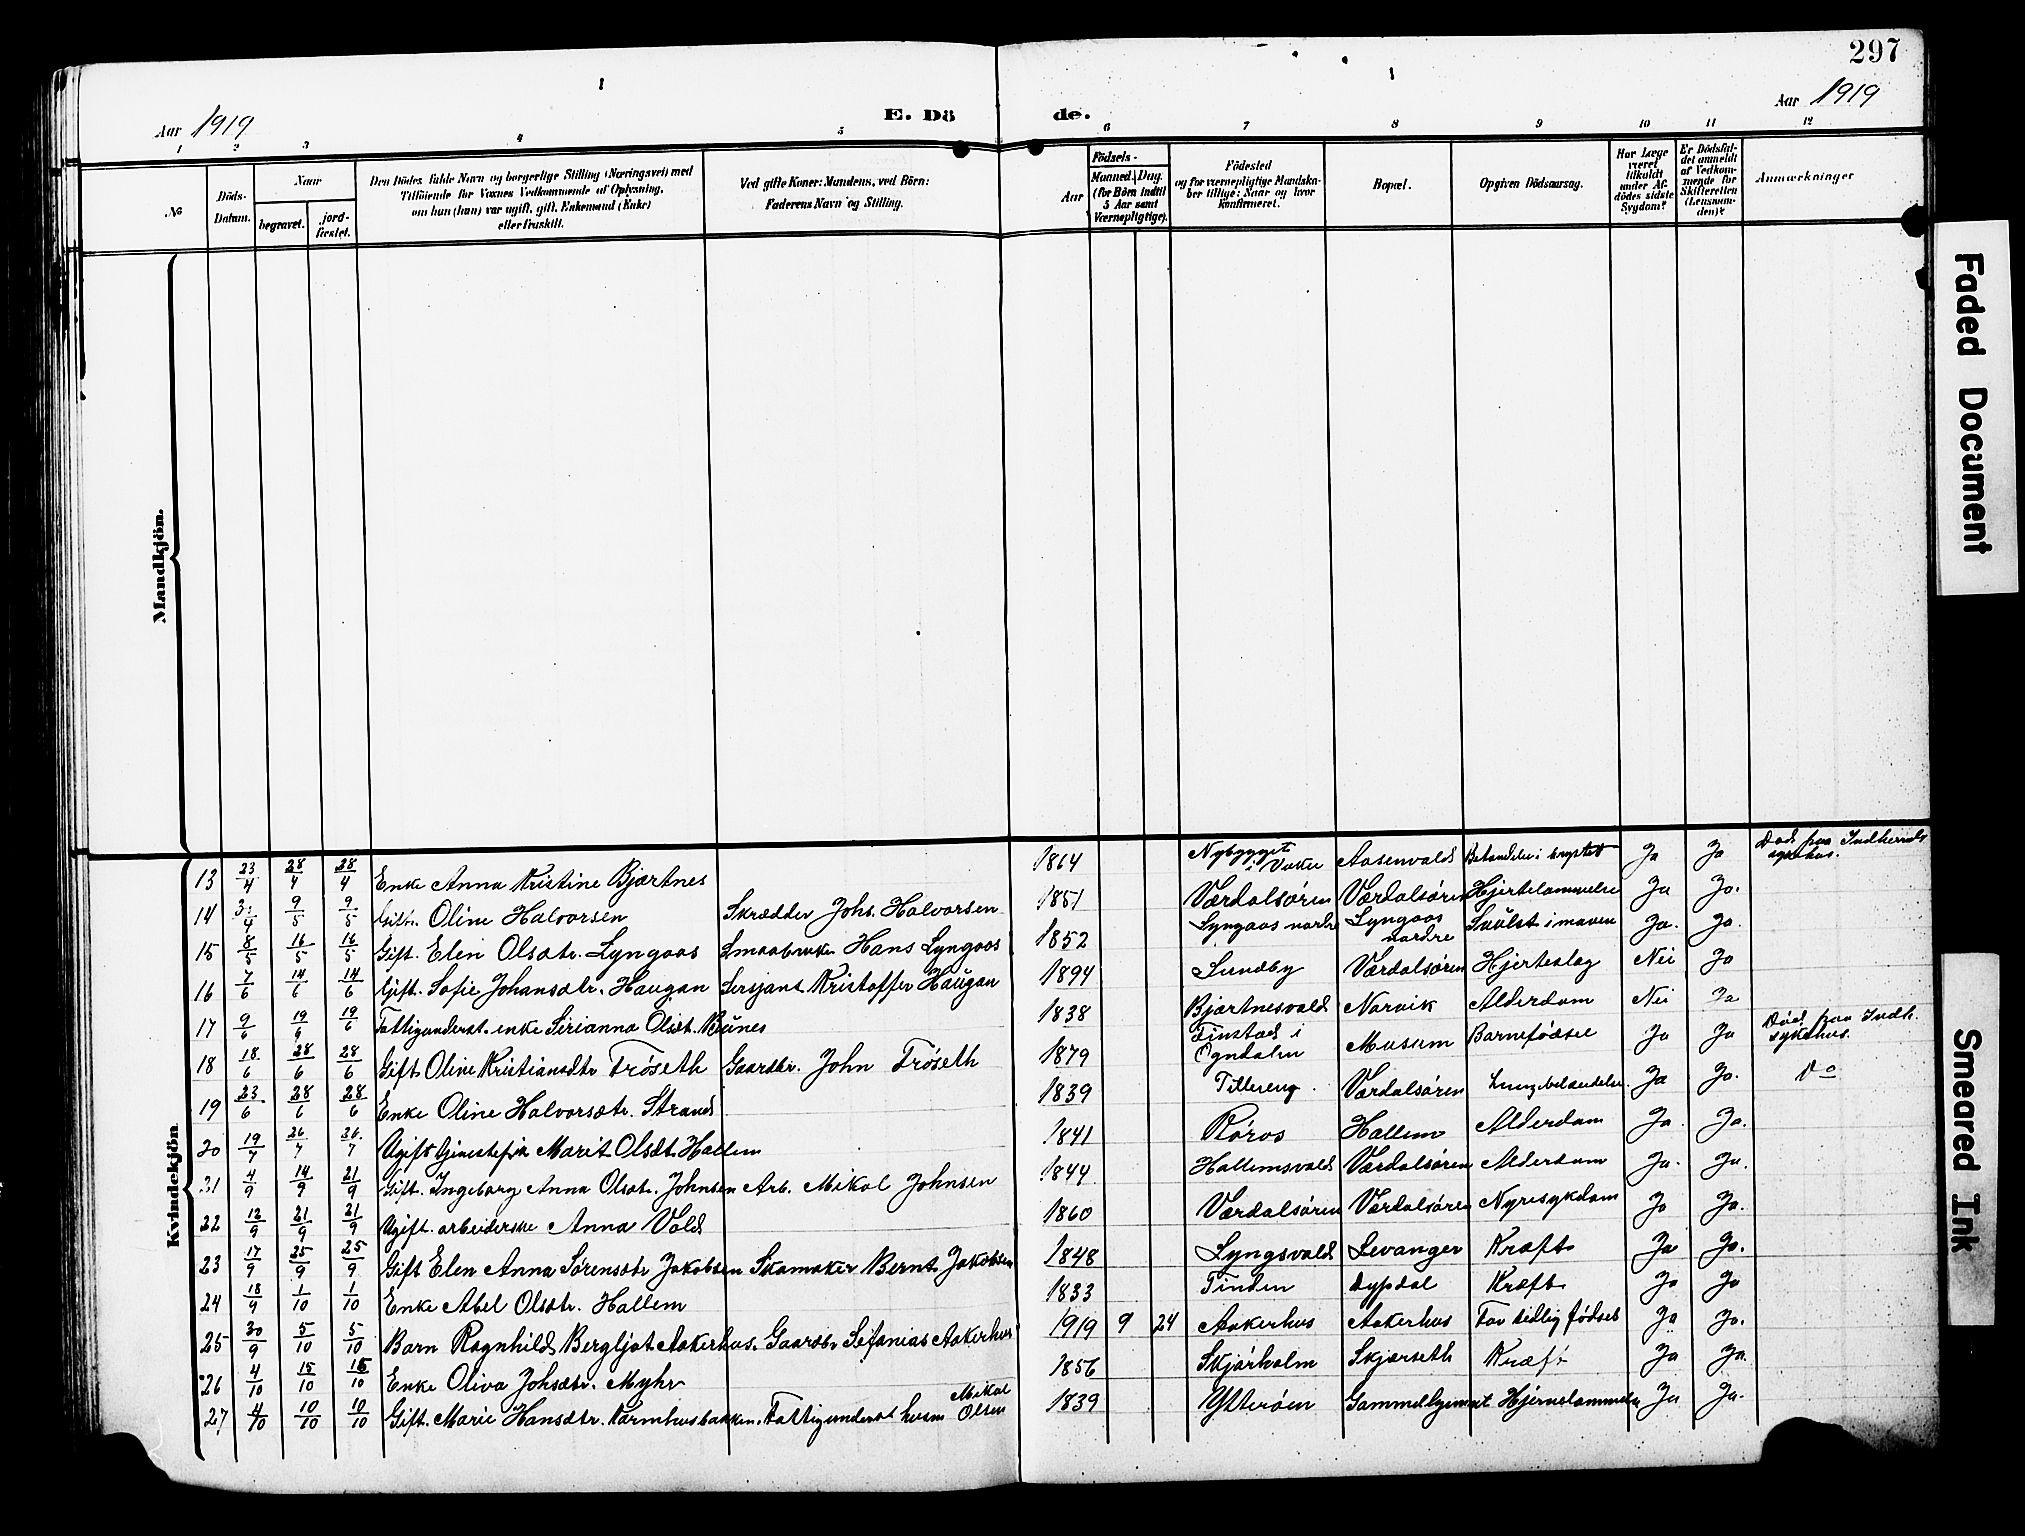 297
Aar 1919
E. Dö de.
Aar 1919
1 2 3 4 5 6 7 8 9 10 11 12
No
Döds-Datum.
Naar
begravet.
jord-fæstet.
Den Dödes fulde Navn og borgerlige Stilling (Næringsvei) med
Tilföiende for Voxnes Vedkommende af Oplysning,
om hun (han) var ugift, gift, Enkemand (Enke)
eller fraskilt.
Ved gifte Koner: Mandens, ved Börn:
Faderens Navn og Stilling.
Aar
Födsels-
Maaned. Dag.
(for Börn indtil
5 Aar samt
Værnepligtige).
Födested
og for værnepligtige Mandska-
ber tillige: Naar og hvor
konfirmeret.
Bopæl.
Opgiven Dödsaarsag.
Har Læge
været
tilkaldt
under Af-
dödes sidste
Sygdom?
Er Dödsfal-
det anmeldt
af Vedkom-
mende for
Skifteretten
(Lensman-
den)?
Anmærkninger
Mandkjön.
Kvindekjön
13 23/4 28/4 28/4 Enke Anna Kristine Bjartnes 1864 Nybygget i Vuku Aasenvald i brystet Ja Ja Död paa Indherreds sykehus.
14 9/5 9/5 Gift. Oline Halvorsen Skrædder Johs. Halvorsen 1851 Værdalsören Værdalsören Hjertelammelse Ja Ja.
15 8/5 16/5 16/5 Gift. Elen Olsdtr. Lyngaas Smaabruker Hans Lyngaas 1852 Lyngaas nordre Lyngaas nordre Svulst i maven Ja. Ja.
16 7/6 14/6 14/6 Gift. Sofie Johansdtr. Haugan Sersjant Kristoffer Haugan 1894 Sundby Værdalsören Hjerteslag Nei Ja
17 9/6 19/6 19/6 Fattigunderst. enke Sirianna Olsdt. Bunes 1838 Bjartnesvald Narvik Alderdom Nei Ja
18 18/6 28/6 28/6 Gift Oline Kristiansdtr Tröseth Gaardbr. John Tröseth 1879 Tinstad i Ogndalen Musum Barnefödsel Ja Ja Död paa Indh. sykehus.
19 23/6 28/6 28/6 Enke Oline Halvorsdtr. Strand 1839 Tillereng Værdalsören Lungebetændelse Ja Ja. Do
20 19/7 26/7 26/7 Ugift Marit Olsdt. Hallem 1841 Röros Hallem Alderdom Ja Ja.
21 4/9 14/9 21/9 Gift. Ingeborg Anna Olsdtr. Johnsen Arb. Mikal Johnsen 1844 Hallemsvald Værdalsören Alderdom Ja. Ja.
22 12/9 21/9 21/9 Ugift. arbeiderske Anna Vold 1860 Værdalsören Værdalsören Nyresykdom Ja Ja.
23 17/9 25/9 25/9 Gift Elen Anna Sörensdtr Jakobsen Skomaker Bernt Jakobsen 1848 Lyngsvald Levanger Kræft Ja Ja.
24 18/9 1/10 1/10 Enke Abel Olsdtr. Hallem 1833 Tinden Dypdal Kræft Ja Ja
25 30/9 5/10 5/10 Barn Ragnhild Bergljot Aakerhus. Gaardbr Sefanias Aakerhus 1919 9 24 Aakerhus Aakerhus For tidlig födsel Ja Ja.
26 4/10 15/10 15/10 Enke Oliva Johsdtr. Myhr 1856 Skjörholm Skjærseth Kræft Ja Ja.
27 4/10 10/10 10/10 Gift. Marie Hansdtr. Kornhusbakken. Fattigunderst husm Mikal Olsen 1839 Ytteröen Gammelhjemmet Hjernelammelse Ja Ja.
Faded Document
Smeared Ink